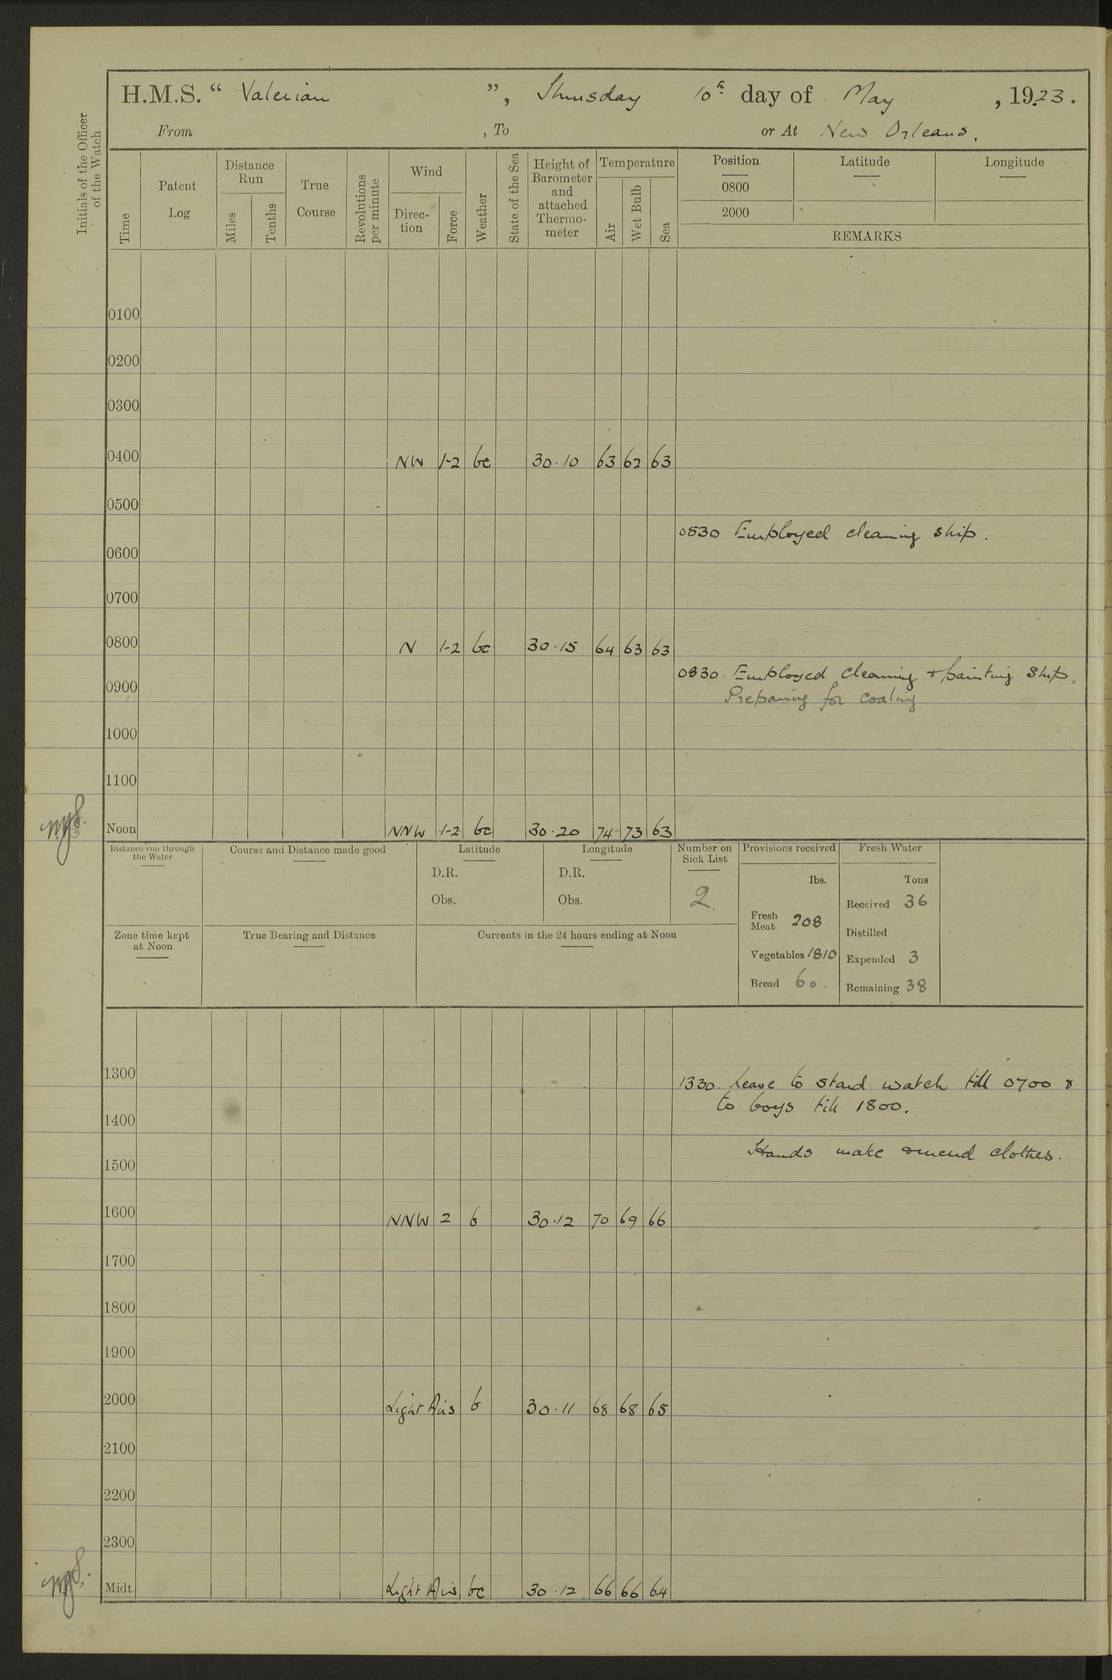 H.M.S. “ Valerian ”, Thursday 10th day of May , 1923.
From , To or At New Orleans.
Initials of the Officer of the Watch
Time
Patent Log
Distance Run
Miles
Tenths
True Course
Revolutions per minute
Wind
Direc-tion
Force
Weather
State of the Sea
Height of Barometer and attached Thermo-meter
Temperature
Air
Wet Bulb
Sea
Position Latitude Longitude
0800
2000
REMARKS
0100
0200
0300
0400 NW 1-2 bc 30.10 63 62 63
0500
0530 Employed cleaning ship.
0600
0700
0800 N 1-2 bc 30.15 64 63 63
0830. Employed cleaning & painting ship.
0900 Preparing for coaling
1000
1100
Noon NNW 1-2 bc 30.20 74 73 63
Distance run through the Water
Course and Distance made good
Latitude
D.R.
Obs.
Longitude
D.R.
Obs.
Number on Sick List
2
Provisions received
lbs.
Fresh Meat 208
Vegetables 1810
Bread 60.
Fresh Water
Tons
Received 36
Distilled
Expended 3
Remaining 38
Zone time kept at Noon
True Bearing and Distance
Currents in the 24 hours ending at Noon
1300 1330. Leave to stard watch till 0700 &
to boys till 1800.
1400
Hands make & mend clothes.
1500
1600 NNW 2 b 30.12 70 69 66
1700
1800
1900
2000 Light Airs b 30.11 68 68 65
2100
2200
2300
Midt. Light Airs bc 30.12 66 66 64